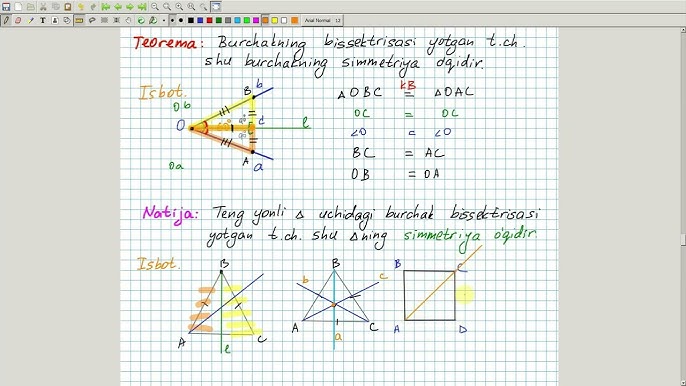 Arial Normal 12
Teorema: Burchakning bissektrisasi yotgan t.ch.
shu burchakning simmetriya o'qidir.
Isbot.
B b
O C l
A a
Ob
Oa
90°
90°
△OBC KB = △OAC
OC = OC
∠O = ∠O
BC = AC
OB = OA
Natija: Teng yonli △ uchidagi burchak bissektrisasi
yotgan t.ch. shu △ning simmetriya o'qidir.
Isbot.
B
A C
l
B
b c
A C
a
B C
A D